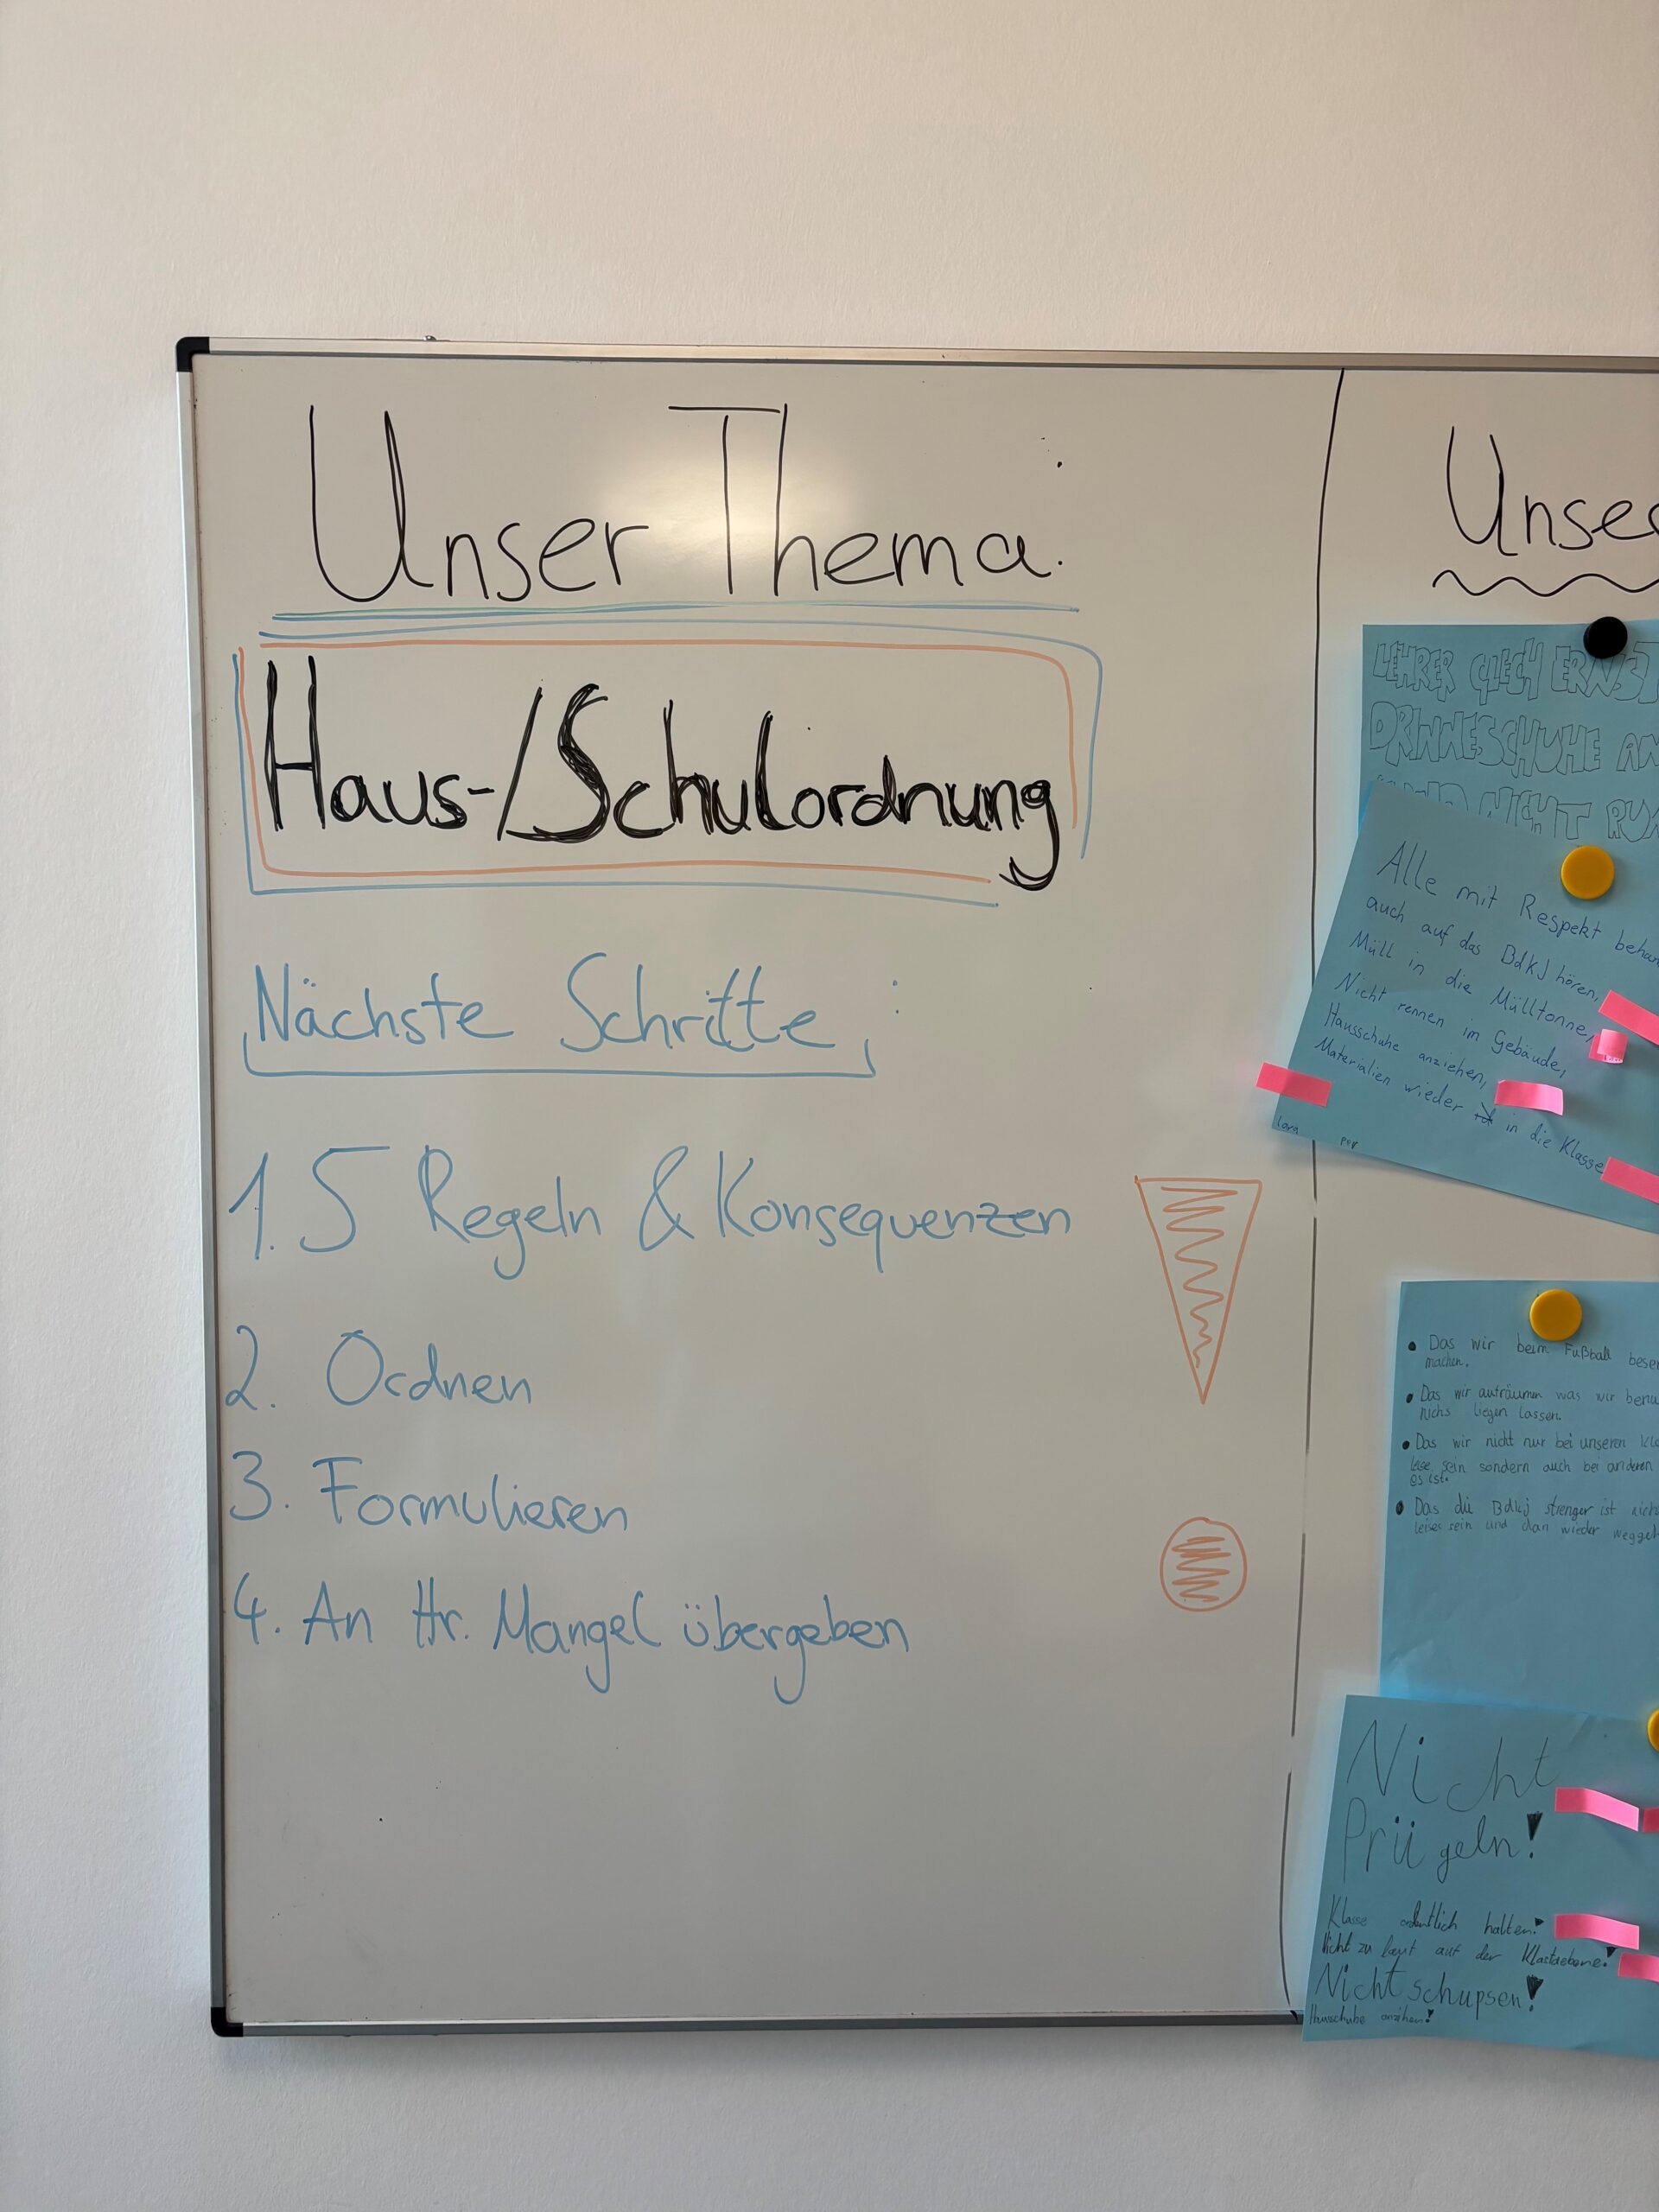 Unser Thema:
Haus-/Schulordnung
Nächste Schritte:
1. 5 Regeln & Konsequenzen
2. Ordnen
3. Formulieren
4. An Hr. Mangel übergeben
Unser
LEHRER GLECH ERNST
DRINNESCHUHE AN
NICHT
Alle mit Respekt
auch auf das BdKJ hören,
Müll in die Mülltonne,
Nicht rennen im Gebäude,
Hausschuhe anziehen,
Materialien wieder in die Klasse
Lara
• Das wir beim Fußball
machen.
• Das wir auträumen was wir
nichs liegen lassen.
• Das wir nicht nur bei unseren
leise sein sondern auch bei anderen
es ist.
• Das die Bdkj strenger ist
leises sein und dan wieder
Nicht
Prügeln!
Klasse ordentlich halten!
Nicht zu laut auf der
Nicht schupsen!